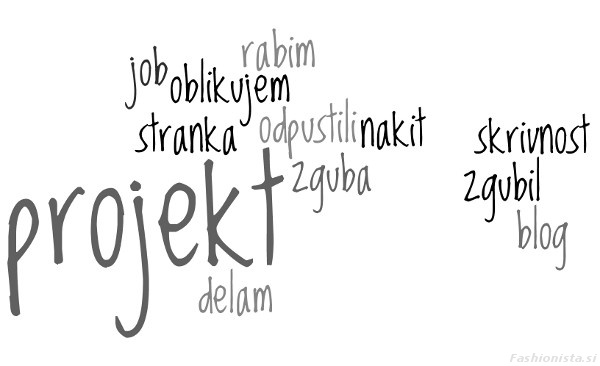 rabim
job
oblikujem
stranka
odpustili
nakit
skrivnost
zguba
zgubil
projekt
blog
delam
Fashionista.si